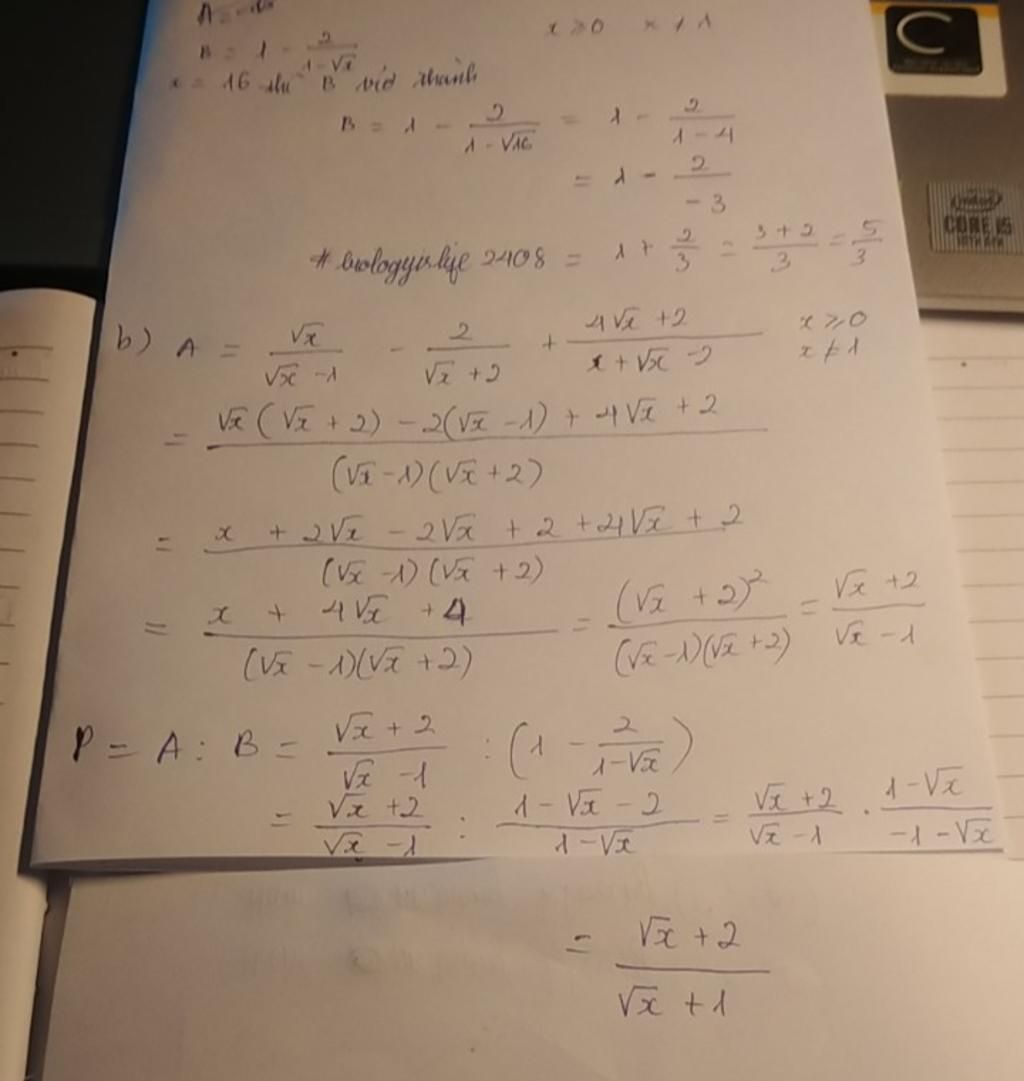 B = 1 - 2/(1-√x)    x ≥ 0    x ≠ 1
x = 16 thì B viết thành
B = 1 - 2/(1-√16) = 1 - 2/(1-4)
= 1 - 2/(-3)
#biologyislife2408 = 1 + 2/3 = (3+2)/3 = 5/3
b) A = √x/(√x -1) - 2/(√x +2) + (4√x +2)/(x+√x -2)    x ≥ 0    x ≠ 1
= (√x(√x + 2) - 2(√x -1) + 4√x + 2)/((√x -1)(√x +2))
= (x + 2√x - 2√x + 2 + 4√x + 2)/((√x -1)(√x +2))
= (x + 4√x + 4)/((√x -1)(√x +2)) = (√x +2)²/((√x -1)(√x +2)) = (√x +2)/(√x -1)
P = A : B = (√x + 2)/(√x -1) : (1 - 2/(1-√x))
= (√x +2)/(√x -1) : (1-√x - 2)/(1-√x) = (√x +2)/(√x -1) · (1-√x)/(-1-√x)
= (√x +2)/(√x +1)
CORE i5